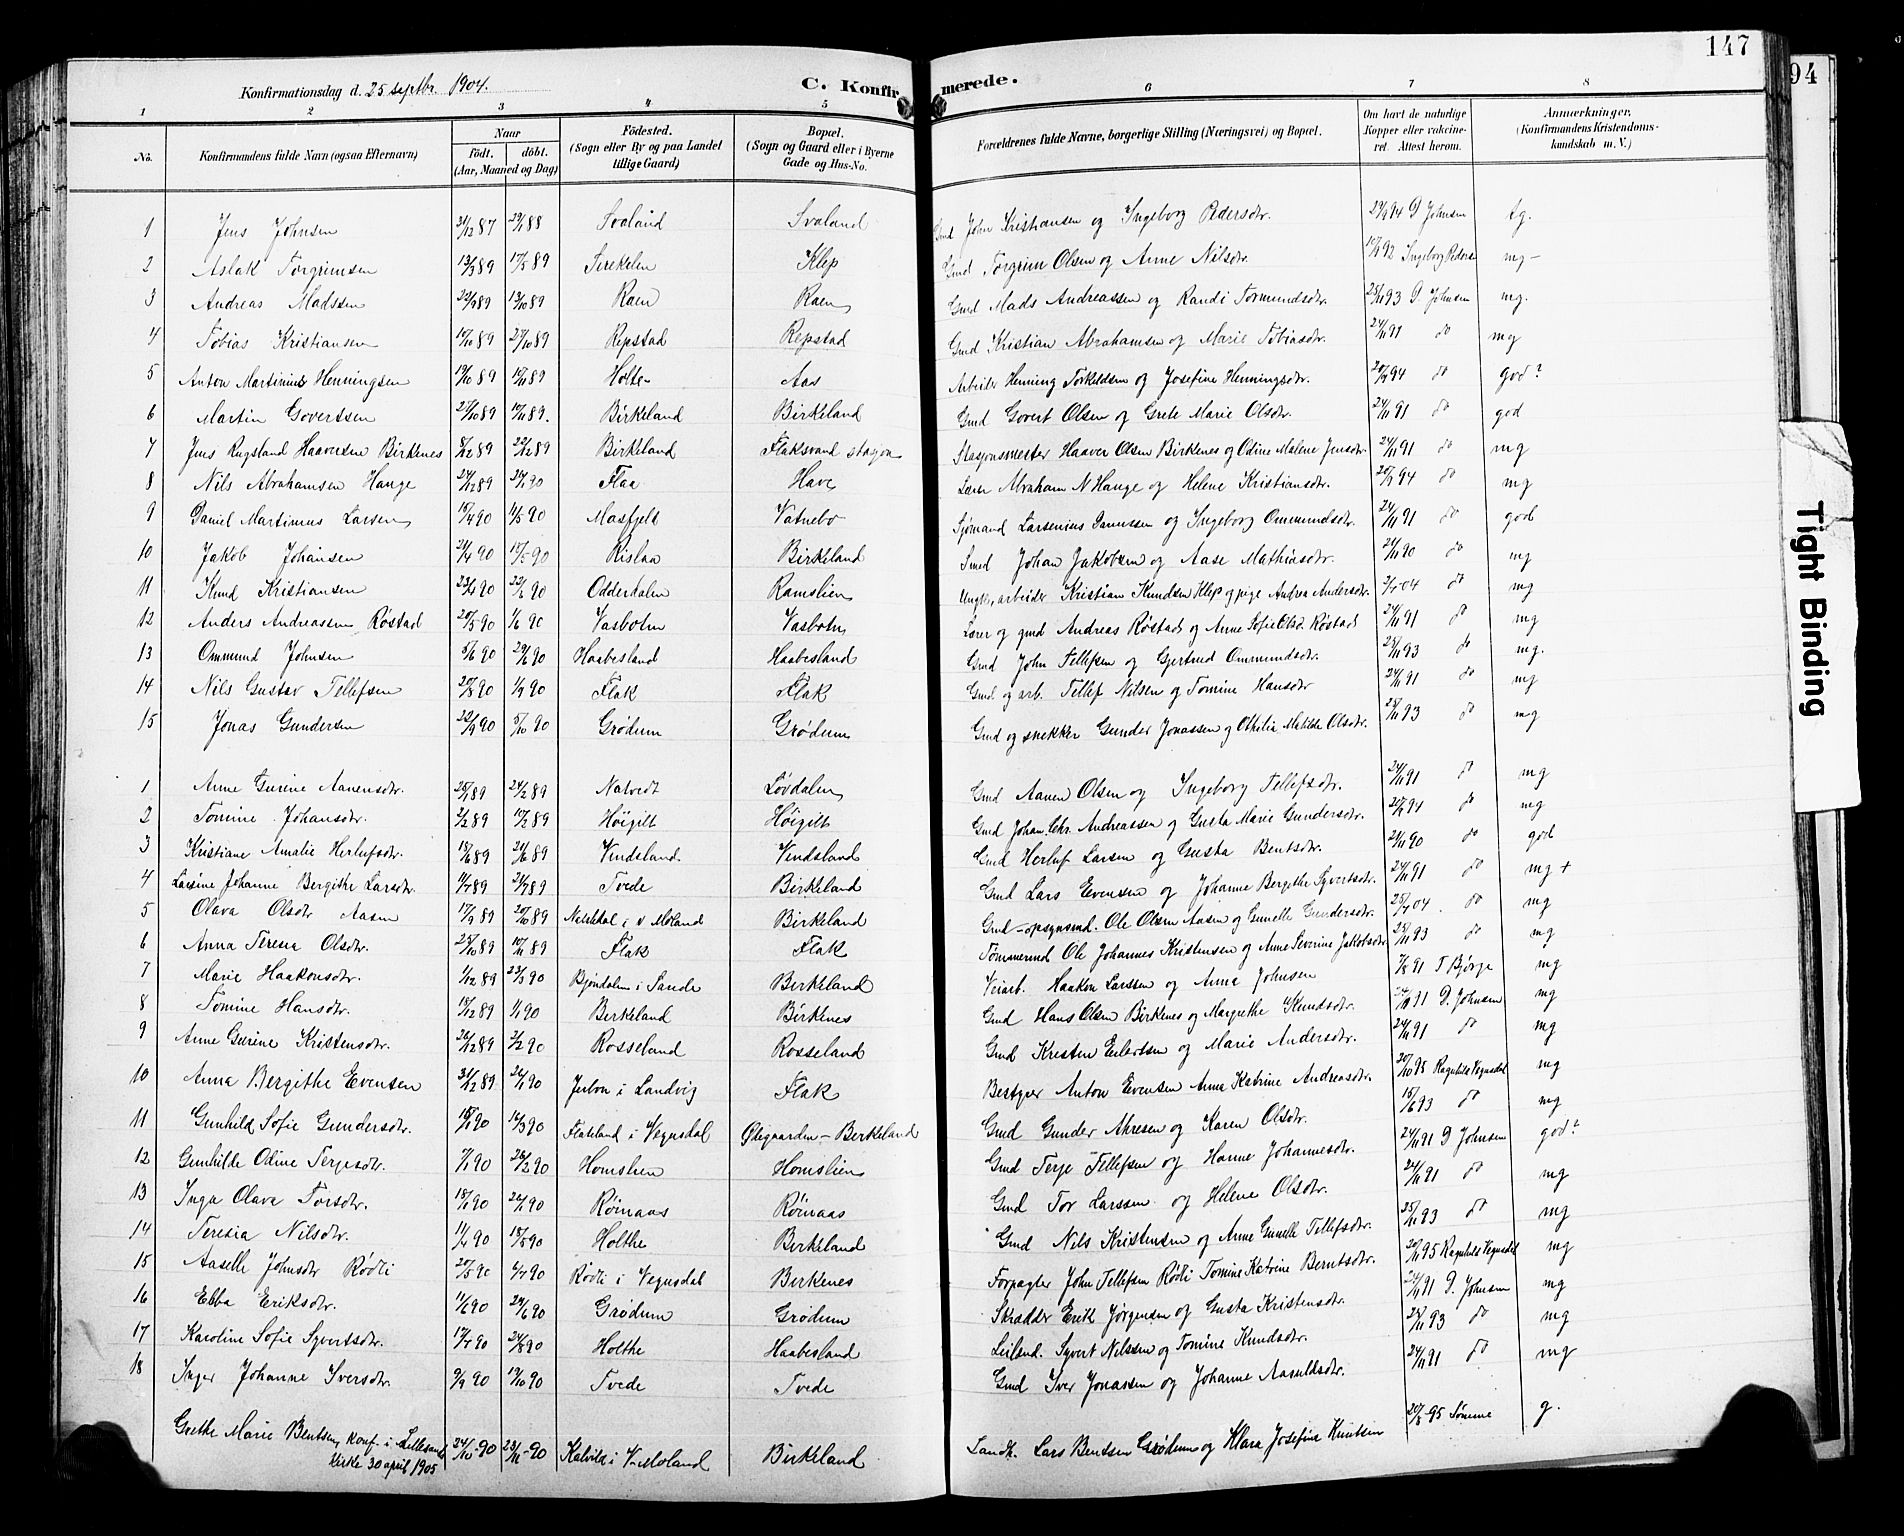 147
94
Konfirmationsdag d. 25 septbr. 1904.
C. Konfirmerede.
1 2 3 4 5 6 7 8
No. Konfirmandens fulde Navn (ogsaa Efternavn) Naar født, døbt. (Aar, Maaned og Dag) Fødested. (Sogn eller By og paa Landet tillige Gaard) Bopæl. (Sogn og Gaard eller i Byerne Gade og Hus-No. Forældrenes fulde Navne, borgerlige Stilling (Næringsvei) og Bopæl. Om havt de naturlige Kopper eller vakcineret. Attest herom. Anmærkninger. (Konfirmandens Kristendomskundskab m. V.)
1 Jens Johnsen 31/12 87 29/1 88 Svaland Svaland Gmd John Kristiansen og Ingeborg Pedersdtr. 94 D Johnsen tg.
2 Aslak Torgrimsen 13/3 89 17/5 89 Serekilen Klep Gmd Torgrim Olsen og Anne Nilsdtr. 92 Ingeborg Peders mg-
3 Andreas Madssen 22/9 89 13/10 89 Raen Raen Gmd Mads Andreassen og Randi Tormundsdtr. 25/11 93 D. Johnsen mg.
4 Tobias Kristiansen 10/10 89 27/10 89 Repstad Repstad Gmd Kristian Abrahamsen og Marie Tobiasdtr. 24/11 91 do mg
5 Anton Martinius Henningsen 19/10 89 10/11 89 Holte Aas Arbeider Henning Torkeldsen og Josefine Henningsdtr. 20/9 94 do god?
6 Martin Govertsen 27/10 89 17/11 89. Birkeland Birkeland Gmd Govert Olsen og Grete Marie Olsdtr. 24/11 91 do god
7 Jens Rugsland Haaversen Birkenes 8/12 89 22/12 89 Birkeland Flaksvand stasjon Stasjonsmester Haaver Olsen Birkenes og Odine Malene Jensdtr. 24/11 91 do mg
8 Nils Abrahamsen Hauge 24/12 89 26/1 90 Flaa Have Lærer Abraham N Hauge og Helene Kristiansdtr. 20/9 94 do mg
9 Daniel Martinius Larsen 15/4 90 11/5 90 Masfjelt Vatnebo Sjømand Larsenius Danussen og Ingeborg Ommundsdtr. 24/11 91 do god
10 Jakob Johansen 21/4 90 15/5 90 Rislaa Birkeland Smed Johan Jakobsen og Aase Mathiasdtr. 21/11 90 do mg
11 Knud Kristiansen 23/4 90 22/6 90 Oddersdalen Ramslien Ungk. arbeider Kristian Knudsen Klep og pige Andrea Andersdtr. 04 do mg
12 Anders Andreassen Røstad 20/5 90 1/6 90 Vasbotn Vasbotn Lærer og gmd Andreas Røstad og Anne Sofie Olsd. Røstad 24/11 91 do mg
13 Ommund Johnsen 5/6 90 29/6 90 Haabesland Haabesland Gmd John Tellefsen og Gjertrud Ommundsdtr. 25/11 93 do mg.
14 Nils Gustav Tellefsen 20/8 90 1/9 90 Flak Flak Gmd. og arb. Tellef Nilsen og Tomine Hansdtr 24/11 91 do mg
15 Jonas Gundersen 22/9 90 5/10 90 Grødum Grødum Gmd og snekker Gunder Jonassen og Othilia Matilde Olsdtr. 25/11 93 do mg
1 Anne Gurine Aanensdtr. 25/1 89 24/2 89 Natvedt Løvdalen Gmd Aanen Olsen og Ingeborg Tellefsdtr. 24/11 91 do mg
2 Tomine Johansdtr. 2/2 89 17/2 89 Høigilt Høigilt Gmd Johan Chr. Andreassen og Gusta Marie Gundersdtr. 20/9 94 do mg
3 Kristiane Amalie Herlufsdtr. 18/6 89 21/6 89 Vindsland. Vindsland Gmd Herluf Larsen og Gusta Bentsdtr. 21/11 90 do god
4 Larsine Johanne Bergithe Larsdtr. 11/7 89 21/7 89 Tvede Birkeland Gmd Lars Evensen og Johanne Bergithe Syvertsdtr. 24/11 91 do mg +
5 Olava Olsdtr Aasen 17/9 89 20/10 89 Natveldal i V Moland Birkeland Gmd - opsynsmd. Ole Olsen Aasen og Gunelle Gundersdtr. 04. do mg
6 Anna Teresia Olsdtr. 25/10 89 10/11 89 Flak Flak Tømmermd Ole Johannes Kristensen og Anne Severine Jakobsdtr 25/11 93 do mg
7 Marie Haakonsdtr. 1/12 89 23/3 90 Bjøndalen i Sande Birkeland Veiarb. Haakon Larssen og Anna Johnsen 7/8 91 T Bjørge mg
8 Tomine Hansdtr. 15/12 89 1/1 90 Berkeland Birkenes Gmd Hans Olsen Birkenes og Margrethe Knudsdtr. 24/11 91 D. Johnsen mg
9 Anne Gurine Kristensdtr. 26/12 89 2/2 90 Rosseland Rosseland Gmd Kresten Eilertsen og Marie Andersdtr. 24/11 91 do mg
10 Anna Bergithe Evensen 31/12 89 26/1 90 Jerbon i Landvig Flak Bestyrer Anton Evensen Anna Katrine Andreasdtr. 20/10 95 Ragnhild Vegusdal mg
11 Gunhild Sofie Gundersdtr. 15/1 90 16/3 90 Flateland i Vegusdal Østegaarden - Birkeland Gmd Gunder Akresen og Karen Olsdtr. 15/6 93 do mg
12 Gunhilde Odine Terjesdtr. 7/1 90 26/2 90 Homslien Homslien Gmd Terje Tellefsen og Hanne Johannesdtr. 24/11 91 D Johnsen god?
13 Inga Olava Torsdtr. 18/1 90 26/1 90 Røinaas Røinaas Gmd Tor Larssen og Helene Olsdtr. 24/11 91 do mg
14 Teresia Nilsdtr. 11/4 90 18/5 90 Holthe Birkeland Gmd Nils Kristensen og Anne Gunelle Tellefsdtr. 25/11 93 do mg
15 Aaselle Johnsdtr Rødli 20/5 90 6/7 90 Rødli i Vegusdal Birkenes Forpagter John Tellefsen Rødli Tomine Katrine Berntsdtr. 20/11 95 Ragnhild Vegusdal mg
16 Ebba Eriksdtr. 11/6 90 29/6 90 Grødum Grødum Skrædder Erik Jørgensen og Gusta Kristensdtr. 24/11 91 D. Johnsen mg
17 Karoline Sofie Syvertsdtr. 17/7 90 24/8 90 Holthe Haabesland Leilænd. Syvert Nilssen og Tomine Knudsdtr. 25/11 93 do mg
18 Inger Johanne Iversdtr. 9/9 90 19/10 90 Tvede Tvede Gmd Iver Jonassen og Johanne Aasuldsdtr. 24/11 91 do mg
Grethe Marie Bentsen, konf. i Lillesand kirke 30 april 1905 24/10 -90 23/11 -90 Kalvild i V-Moland Birkeland Landh. Lars Bentsen Grødum og Klara Josefine Knutsen 20/8 -95 Tømme g.
Tight Binding